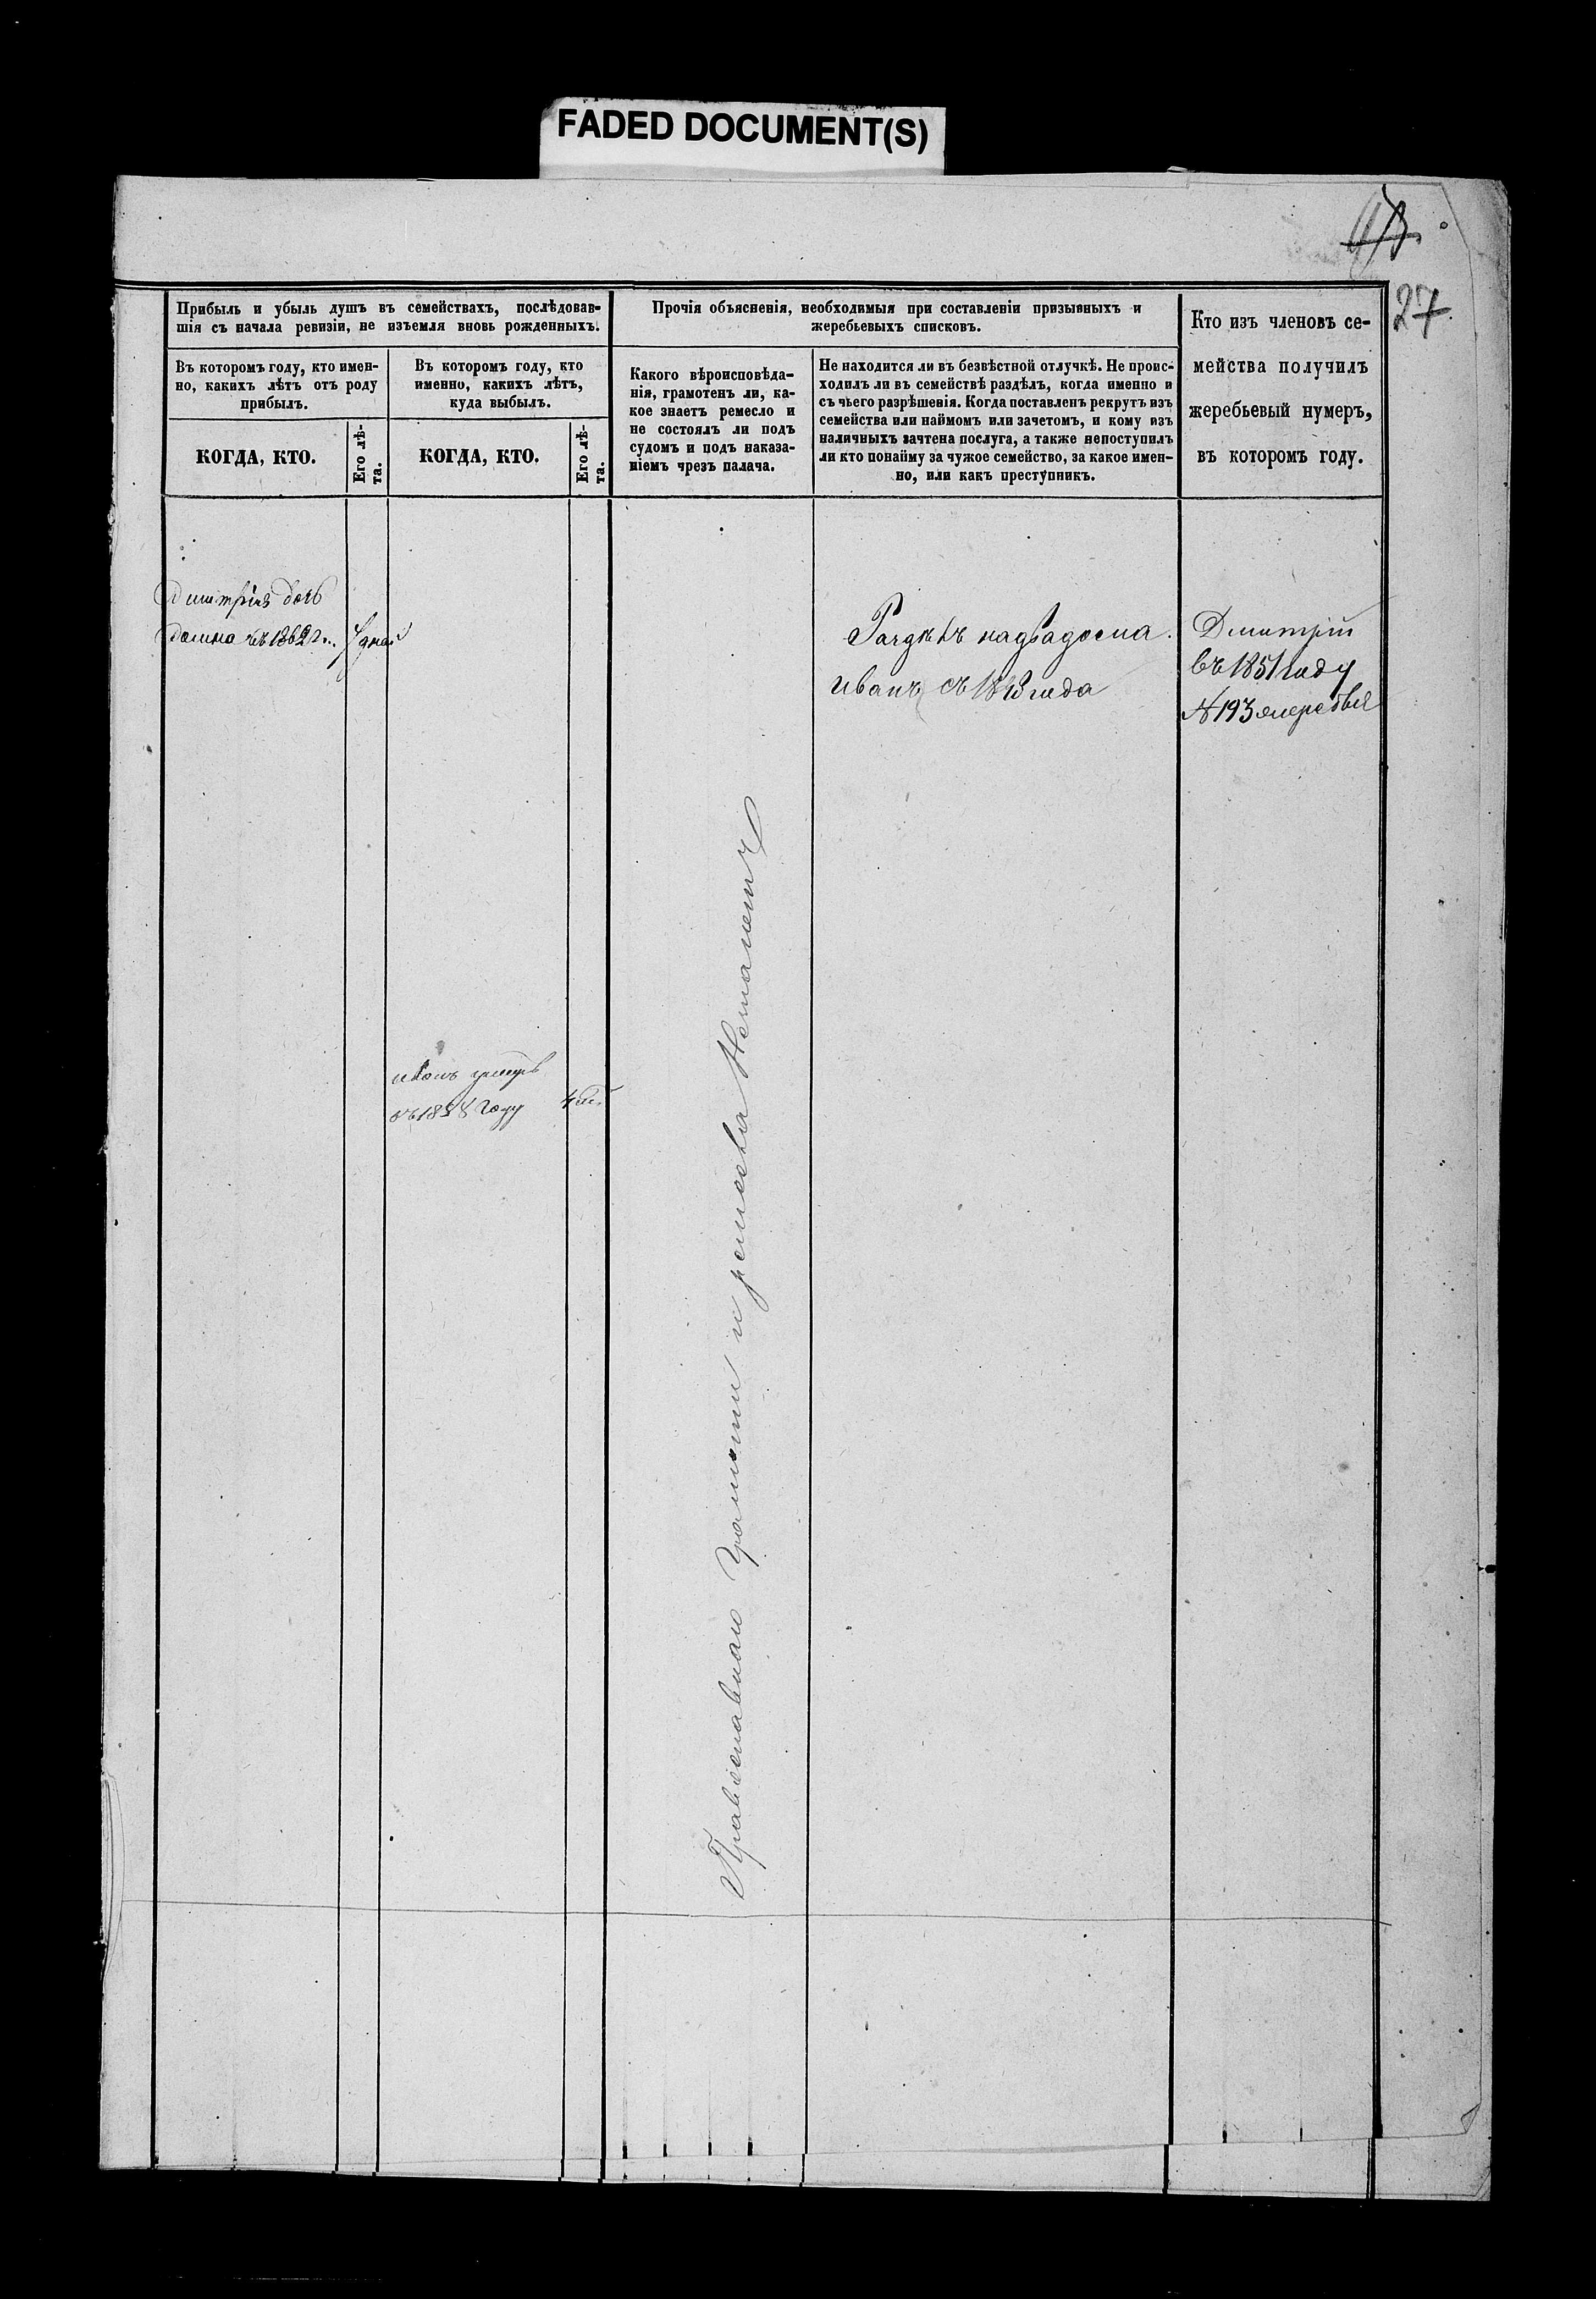 FADED DOCUMENT(S)
27
Прибыль и убыль душъ въ семействахъ, послѣдовав-
шія съ начала ревизіи, не изъемля вновь рожденныхъ.
Прочія объясненія, необходимыя при составленіи призывныхъ и
жеребьевыхъ списковъ.
Кто изъ членовъ се-
мейства получилъ
жеребьевый нумеръ,
въ которомъ году.
Въ которомъ году, кто имен-
но, какихъ лѣтъ отъ роду
прибылъ.
Въ которомъ году, кто
именно, какихъ лѣтъ,
куда выбылъ.
Какого вѣроисповѣда-
нія, грамотенъ ли, ка-
кое знаетъ ремесло и
не состоялъ ли подъ
судомъ и подъ наказа-
ніемъ чрезъ палача.
Не находится ли въ безвѣстной отлучкѣ. Не проис-
ходилъ ли въ семействѣ раздѣлъ, когда именно и
съ чьего разрѣшенія. Когда поставленъ рекрутъ изъ
семейства или наймомъ или зачетомъ, и кому изъ
наличныхъ зачтена послуга, а также непоступилъ
ли кто понайму за чужое семейство, за какое имен-
но, или какъ преступникъ.
КОГДА, КТО.
Его лѣ-
та.
КОГДА, КТО.
Его лѣ-
та.
въ 1862 г.
умеръ
въ 1858 году
Православнаго Грамоты и ремесла Незнаетъ
надвадома.
Иванъ съ 18 года
Дмитрій
въ 1851 году
№ 193